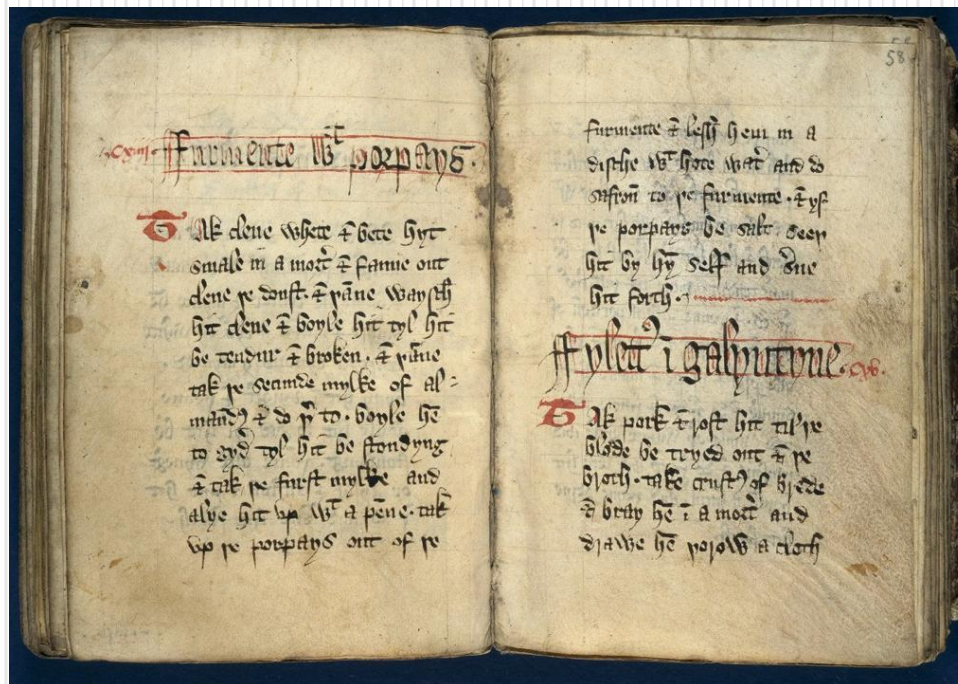 .cxiiij.
Furmente wt porpays.
Tak clene whete & bete hyt
smale in a mort' & fanne out
clene þe doust. & þāne waysch
hit clene & boyle hit tyl hit
be tendur & broken. & þāne
tak þe secunde mylke of al-
maundꝰ & do þ'to. boyle hē
to gyd' tyl hit be stondyng
& tak þe furst mylke and
alye hit vp wt a pēne. tak
vp þe porpays out of þe
58
furmente & lesh hem in a
dische wt hote wat' and do
safron to þe furmente. & yf
þe porpays be salt seeþ
hit by hȳ self and s'ue
hit forth.
Fylettꝰ ī galyntyne. .cxv.
Tak pork & rost hit til þe
blode be tryed out & þe
broth. take crustꝰ of brede
& bray hē ī a mort' and
drawe hē þorow a cloth